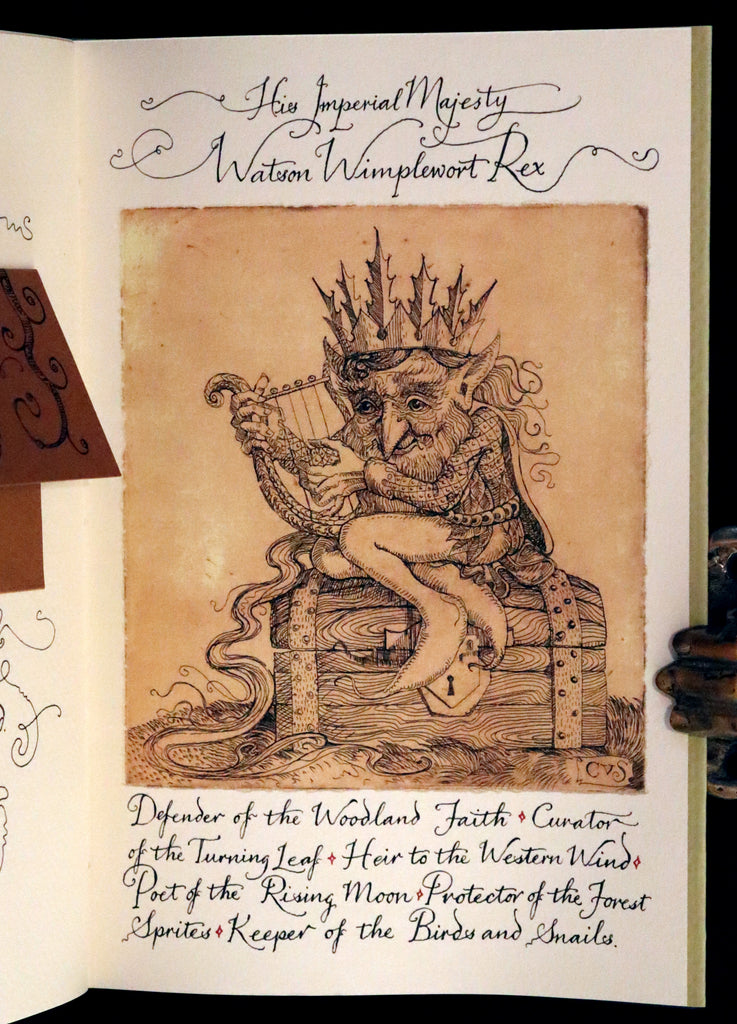 His Imperial Majesty
Watson Wimplewort Rex
CVS
Defender of the Woodland Faith ♦ Curator
of the Turning Leaf ♦ Heir to the Western Wind ♦
Poet of the Rising Moon ♦ Protector of the Forest
Sprites ♦ Keeper of the Birds and Snails.